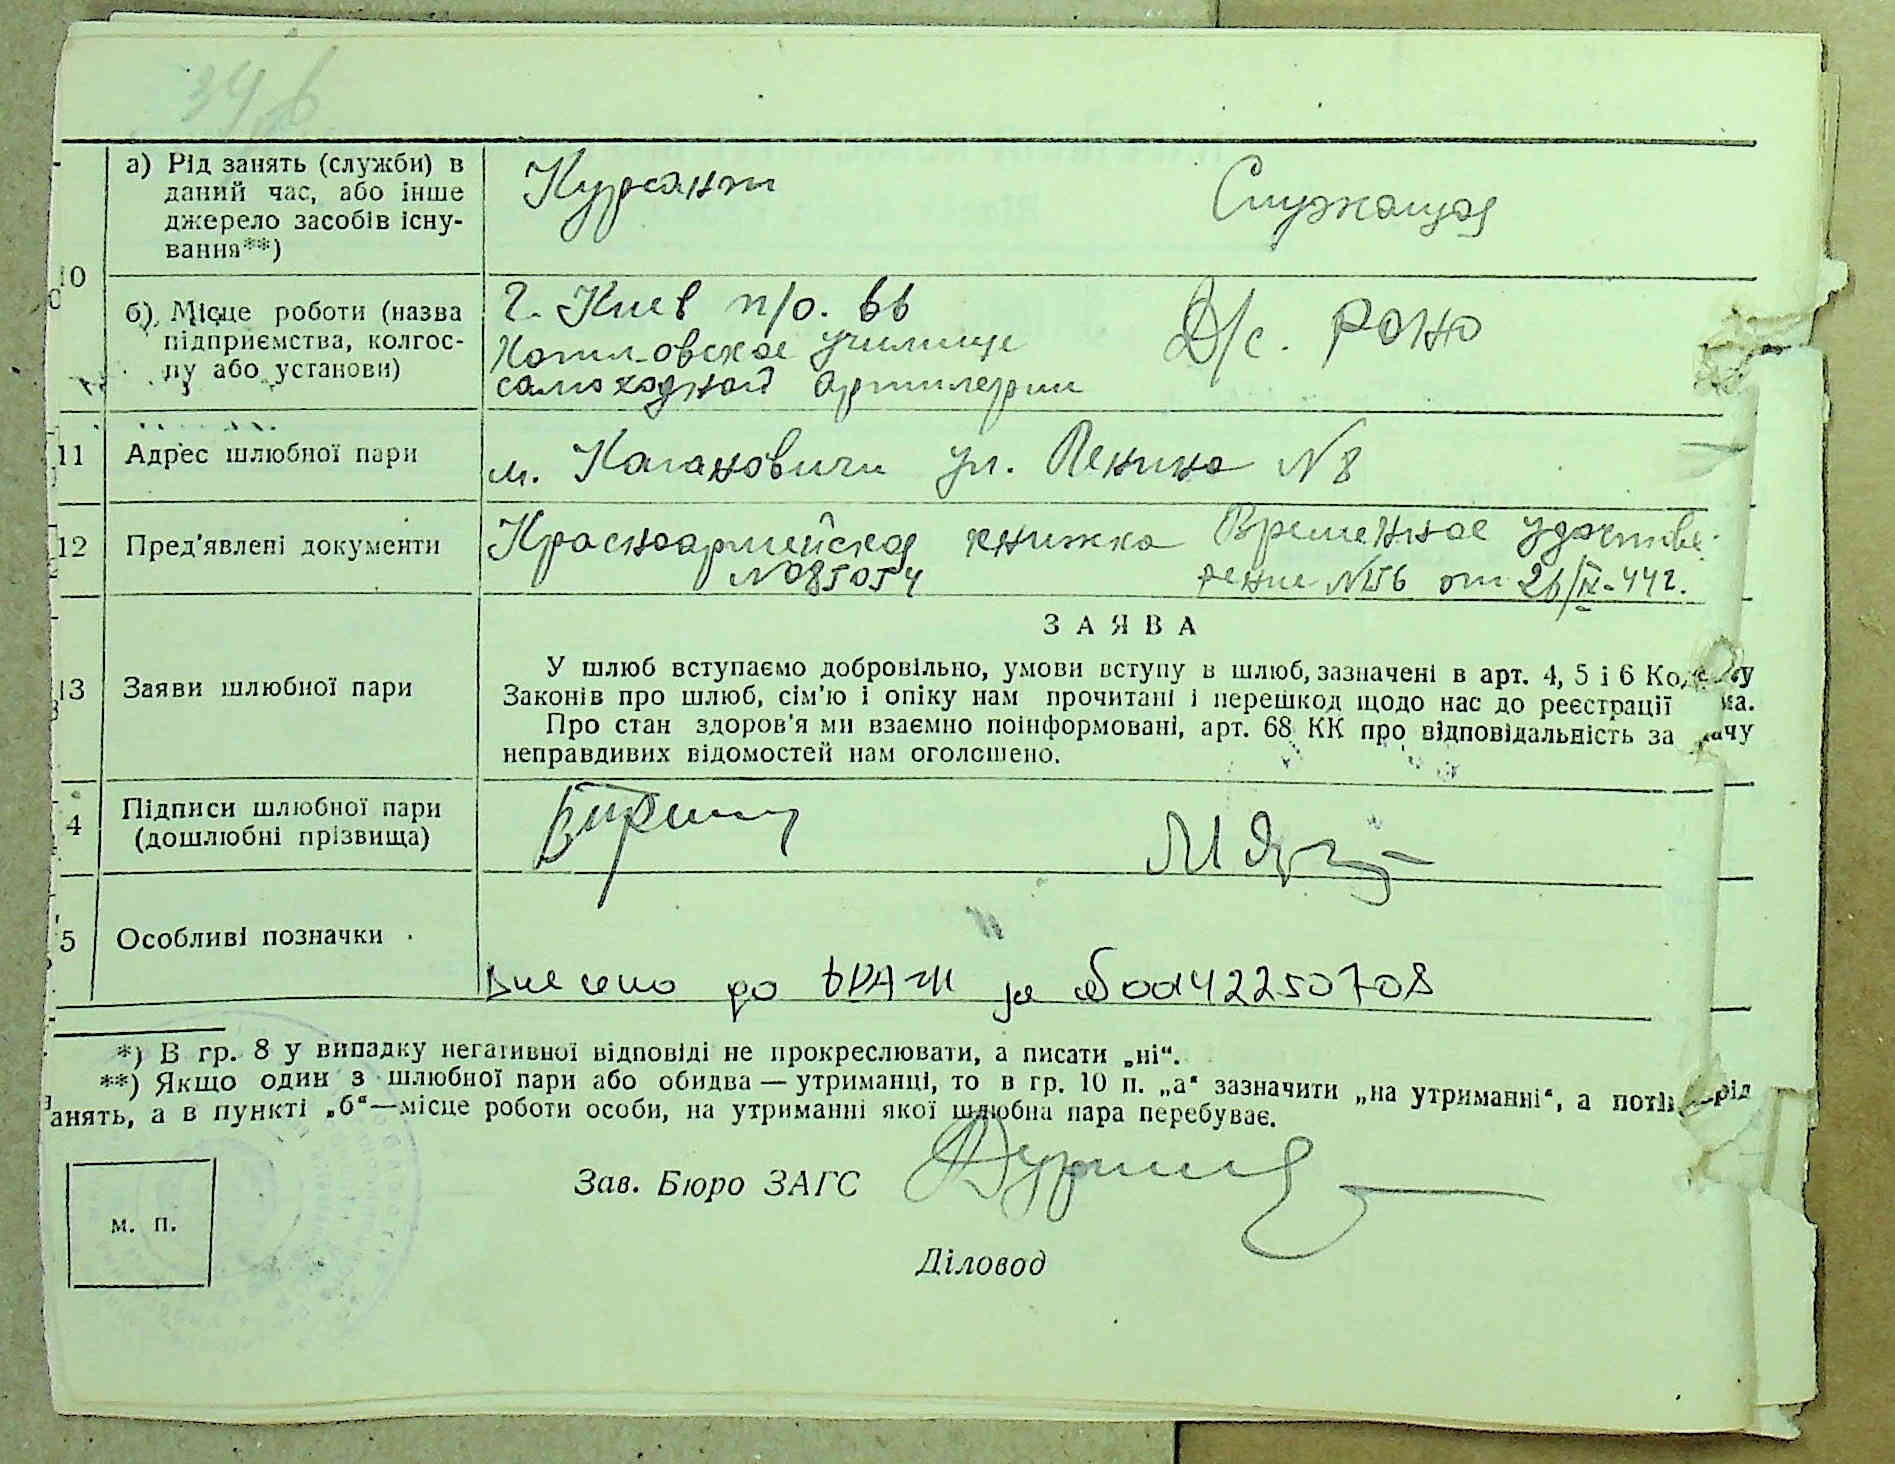 а) Рід занять (служби) в
даний час, або інше
джерело засобів існу-
вання**)
Курсант
Служащая
10
б) Місце роботи (назва
підприємства, колгос-
пу або установи)
г. Киев п/о. 66
училище
самоходной артилерии
Д/с. РОНО
11
Адрес шлюбної пари
м. Кагановичи ул. Ленина № 8
12
Пред'явлені документи
Красноармейская книжка
№ 085054
Временное удостове-
рение № 156 от 26/IX-44 г.
ЗАЯВА
13
Заяви шлюбної пари
У шлюб вступаємо добровільно, умови вступу в шлюб, зазначені в арт. 4, 5 і 6
Законів про шлюб, сім'ю і опіку нам прочитані і перешкод щодо нас до реєстрації
Про стан здоров'я ми взаємно поінформовані, арт. 68 КК про відповідальність за
неправдивих відомостей нам оголошено.
4
Підписи шлюбної пари
(дошлюбні прізвища)
5
Особливі позначки
Внесено до ДРАЦС за № 00142250708
*) В гр. 8 у випадку негативної відповіді не прокреслювати, а писати „ні“.
**) Якщо один з шлюбної пари або обидва — утриманці, то в гр. 10 п. „а“ зазначити „на утриманні“, а потім рід
анять, а в пункті „б“—місце роботи особи, на утриманні якої шлюбна пара перебуває.
Зав. Бюро ЗАГС
м. п.
Діловод